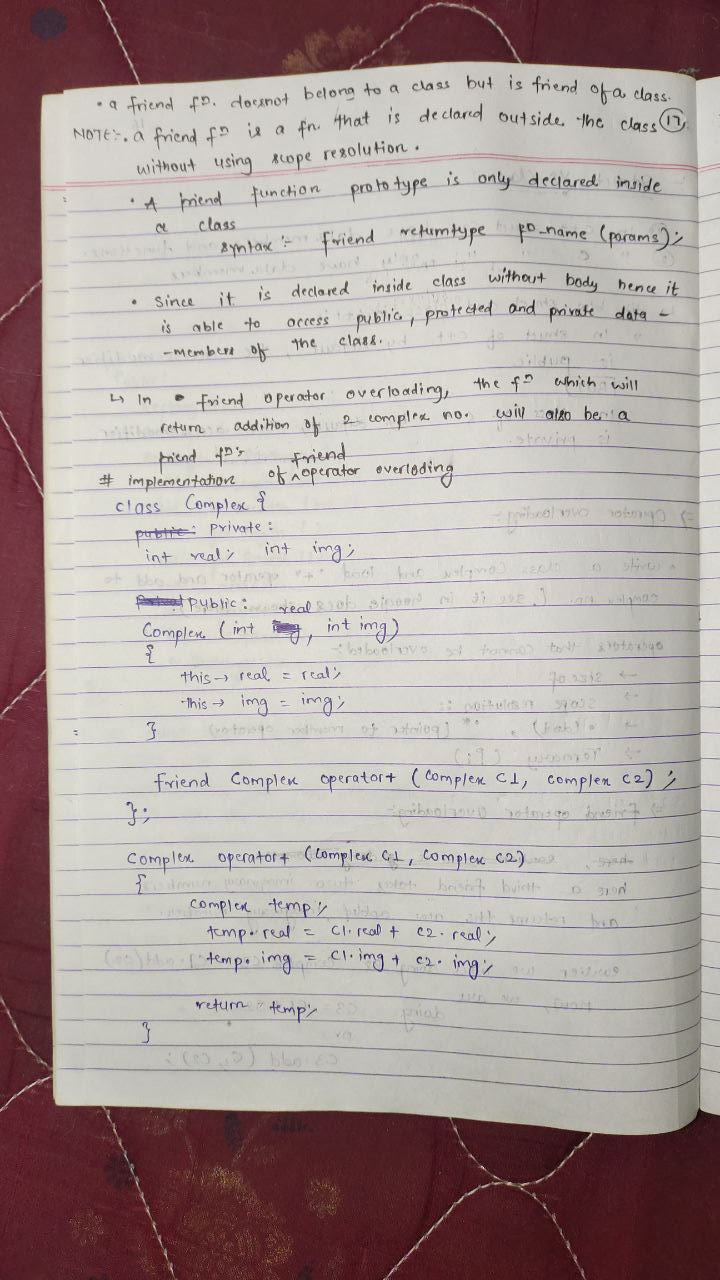 • a friend fⁿ. doesnot belong to a class but is friend of a class.
NOTE:-. a friend fⁿ is a fn. that is declared outside the class (17)
without using scope resolution.
• A friend function prototype is only declared inside
a class
syntax :- friend returntype fⁿ_name (params);
• since it is declared inside class without body hence it
is able to access public, protected and private data -
-members of the class.
↳ In • friend operator overloading, the fⁿ which will
return addition of 2 complex no. will also be a
friend fⁿ;
# implementation of friend operator overloding
class Complex {
public: private :
int real; int img;
public:
Complex (int real, int img)
{
this → real = real;
this → img = img;
}
friend Complex operator+ (Complex C1, complex C2) ;
};
Complex operator+ (Complex C1, Complex C2)
{
Complex temp;
temp.real = C1.real + C2.real;
temp.img = C1.img + C2.img;
return temp;
}